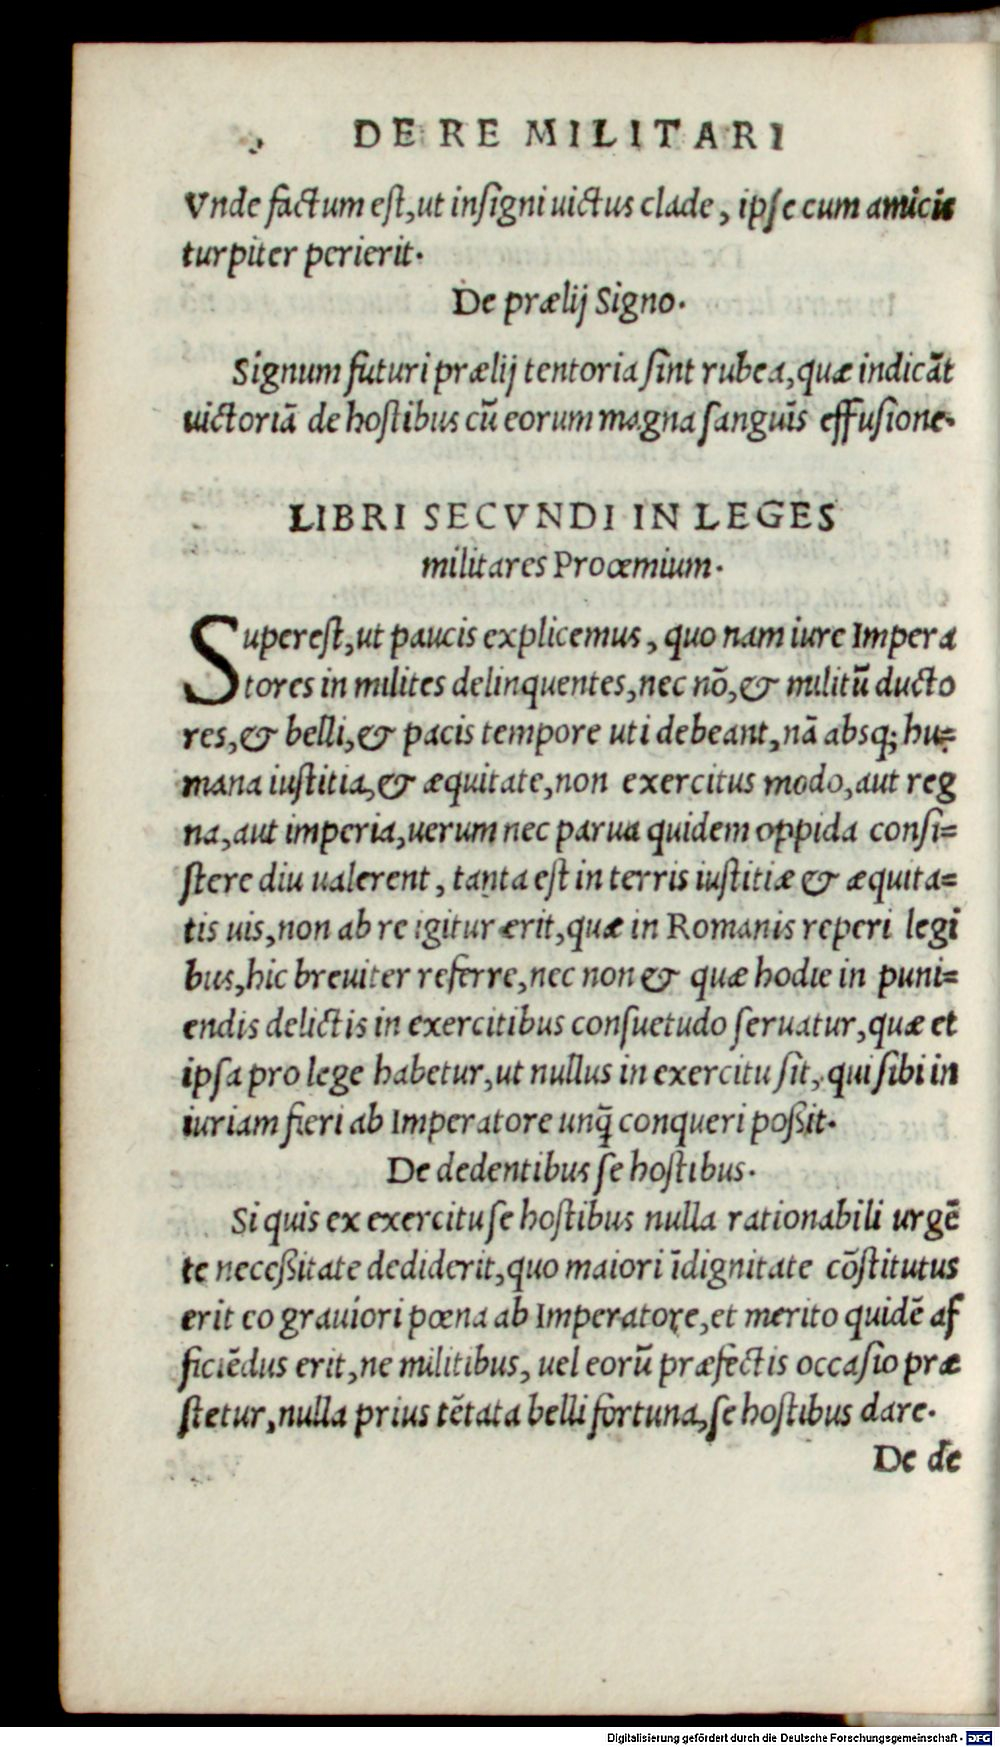 DE RE MILITARI
Vnde factum est, ut insigni uictus clade, ipse cum amicis
turpiter perierit.
De prælij Signo.
Signum futuri prælij tentoria sint rubea, quæ indicāt
uictoriā de hostibus cū eorum magna sanguīs effusione.
LIBRI SECVNDI IN LEGES
militares Proœmium.
Superest, ut paucis explicemus, quo nam iure Impera
tores in milites delinquentes, nec nō, & militū ducto
res, & belli, & pacis tempore uti debeant, nā absq; hu=
mana iustitia, & æquitate, non exercitus modo, aut reg
na, aut imperia, uerum nec parua quidem oppida consi=
stere diu ualerent, tanta est in terris iustitiæ & æquita=
tis uis, non ab re igitur erit, quæ in Romanis reperi legi
bus, hic breuiter referre, nec non & quæ hodie in puni=
endis delictis in exercitibus consuetudo seruatur, quæ et
ipsa pro lege habetur, ut nullus in exercitu sit, qui sibi in
iuriam fieri ab Imperatore unq̄ conqueri poßit.
De dedentibus se hostibus.
Si quis ex exercitu se hostibus nulla rationabili urgē
te neceßitate dediderit, quo maiori īdignitate cōstitutus
erit eo grauiori pœna ab Imperatore, et merito quidē af
ficiēdus erit, ne militibus, uel eorū præfectis occasio præ
stetur, nulla prius tētata belli fortuna, se hostibus dare.
De de
Digitalisierung gefördert durch die Deutsche Forschungsgemeinschaft - DFG